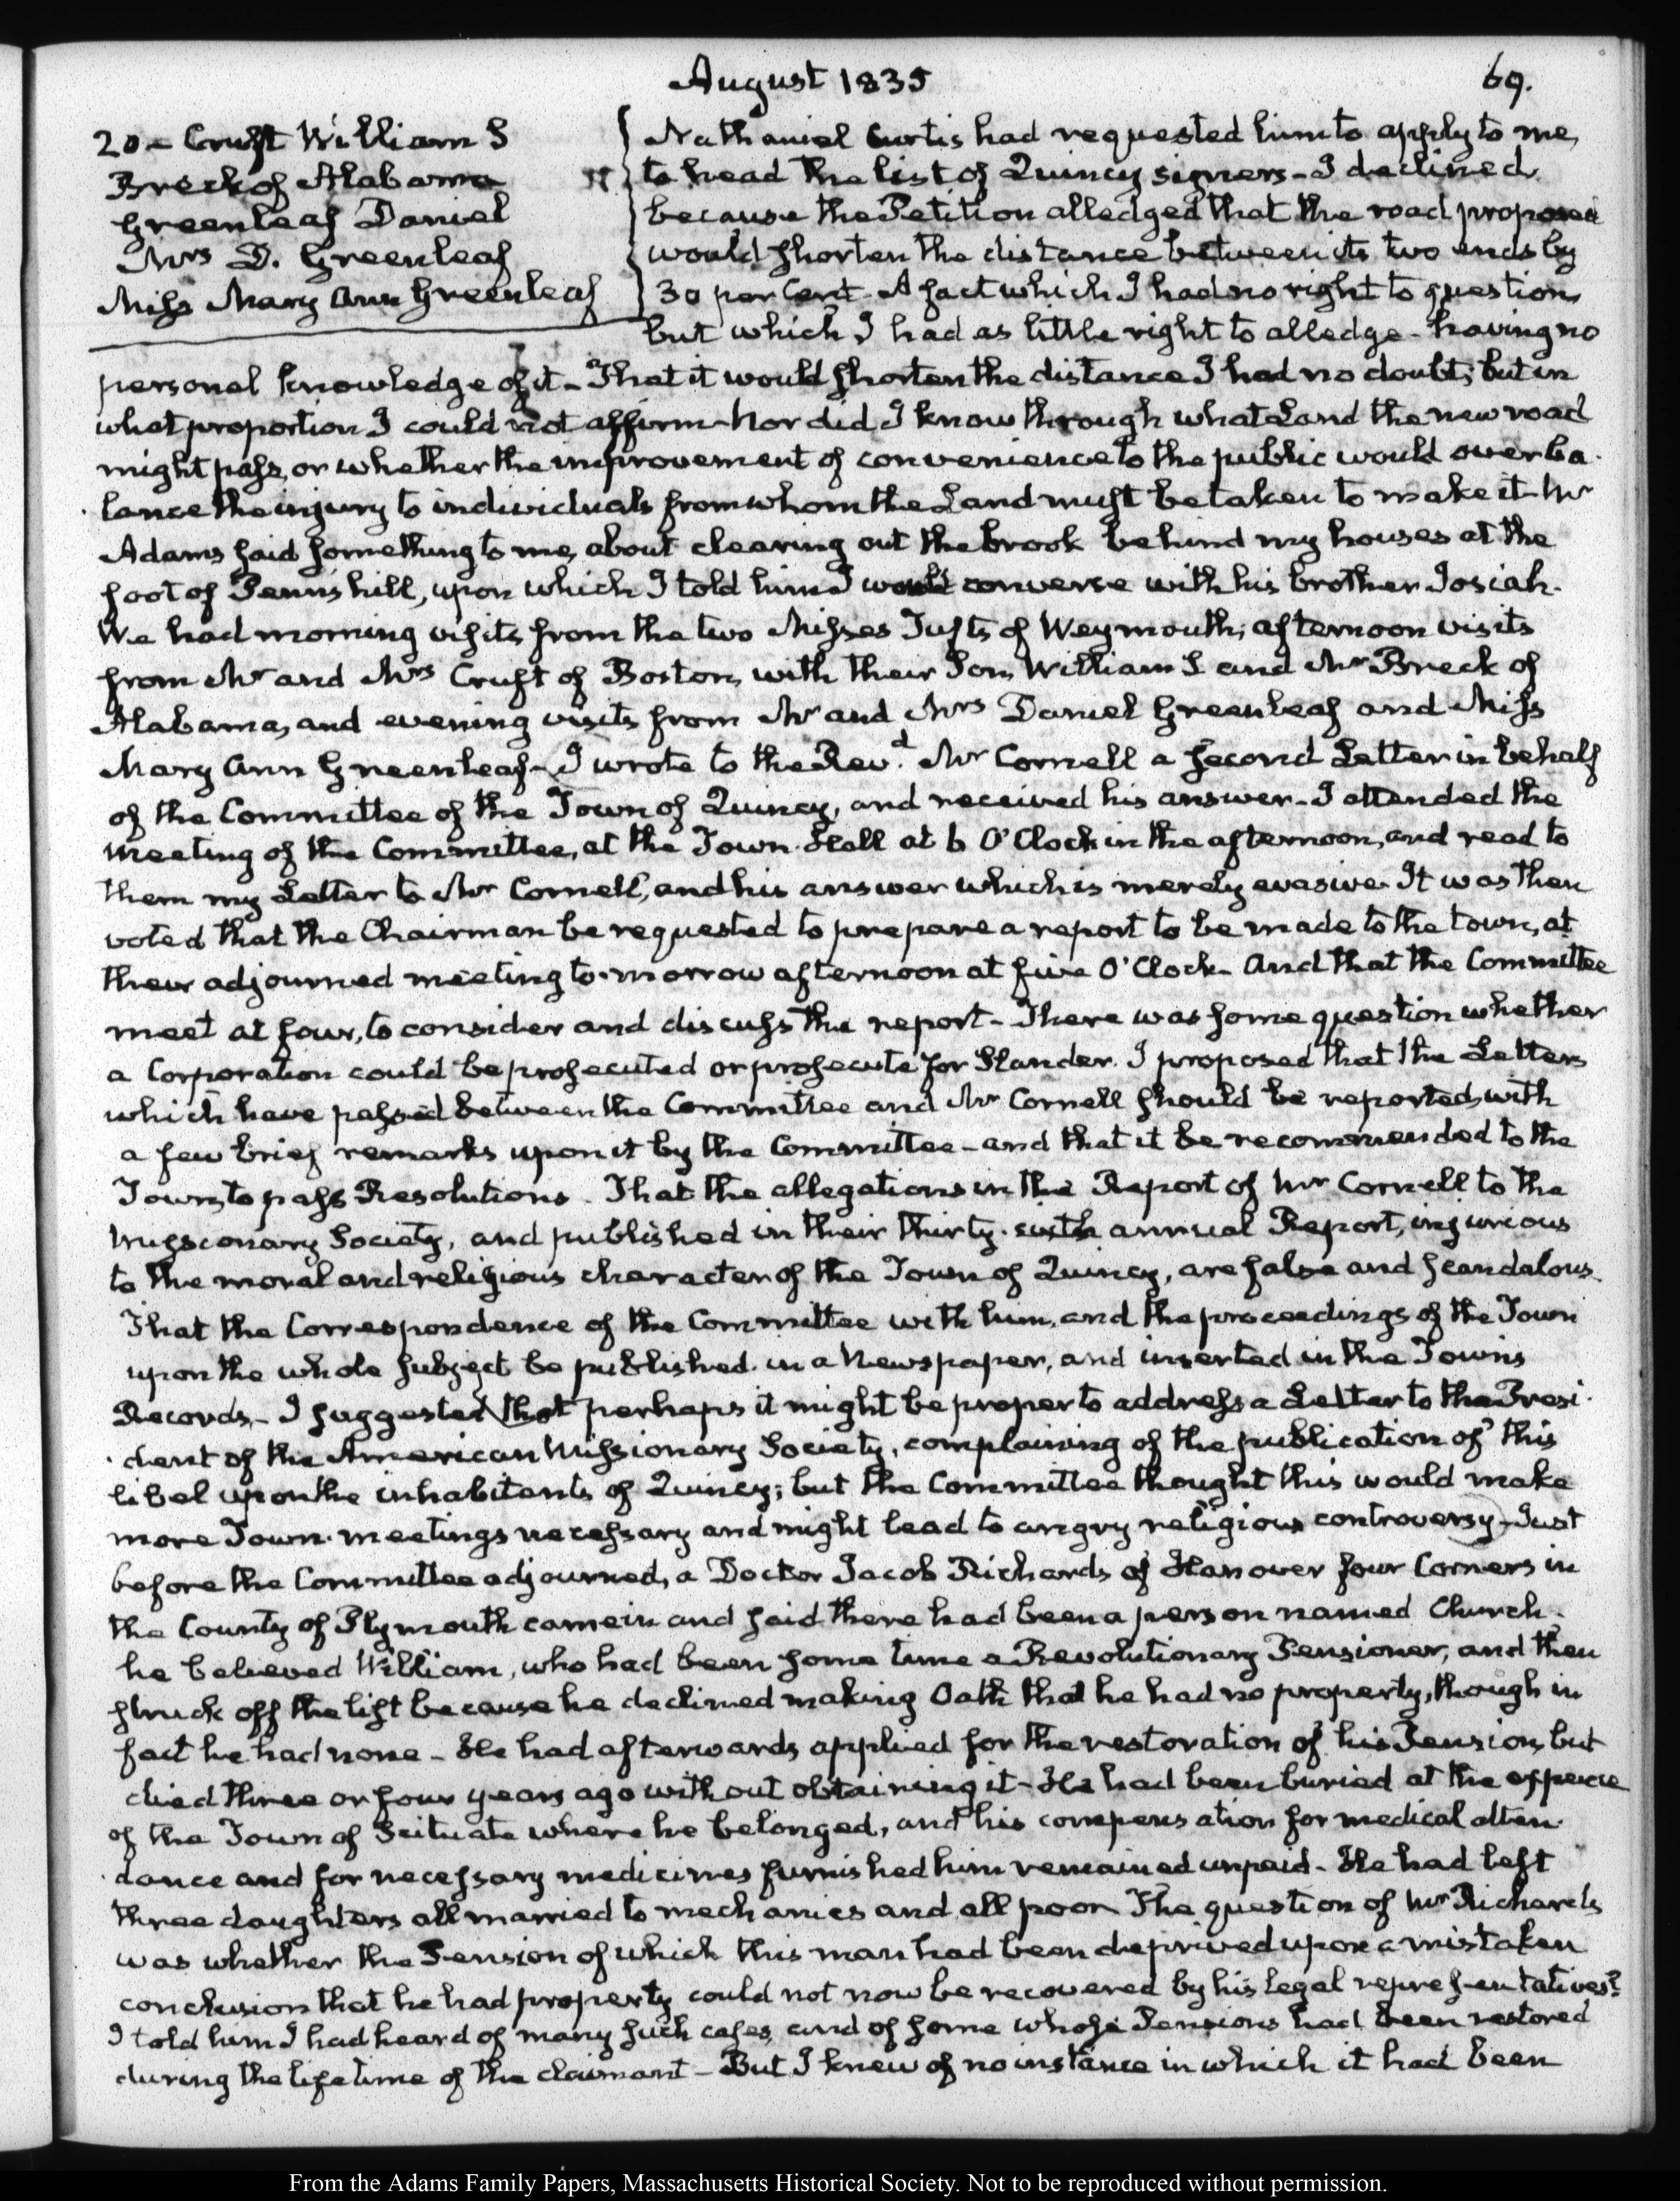 August 1835
69.
20 – Cruft William S
Breck of Alabama
Greenleaf Daniel
Mrs D. Greenleaf
Miss Mary Ann Greenleaf
Nathaniel Curtis had requested him to apply to me,
to head the list of Quincy signers – I declined,
because the Petition alledged that the road proposed
would shorten the distance between its two ends by
30 per Cent – A fact which I had no right to question,
but which I had as little right to alledge – having no
personal knowledge of it – That it would shorten the distance I had no doubt, but in
what proportion I could not affirm – Nor did I know through what Land the new road
might pass, or whether the improvement of convenience to the public would overba-
lance the injury to individuals from whom the Land must be taken to make it – Mr
Adams said something to me, about clearing out the brook behind my houses at the
foot of Penn's hill, upon which I told him I would converse with his brother Josiah.
We had morning visits from the two Misses Tufts of Weymouth; afternoon visits
from Mr and Mrs Cruft of Boston, with their Son, William S and Mr Breck of
Alabama, and evening visits from Mr and Mrs Daniel Greenleaf and Miss
Mary Ann Greenleaf – I wrote to the Revd. Mr Cornell a second Letter in behalf
of the Committee of the Town of Quincy, and received his answer – I attended the
meeting of the Committee, at the Town Hall at 6 O'Clock in the afternoon, and read to
them my Letter to Mr Cornell, and his answer which is merely evasive. It was then
voted that the Chairman be requested to prepare a report to be made to the town, at
their adjourned meeting to-morrow afternoon at five O'Clock – And that the Committee
meet at four, to consider and discuss the report – There was some question whether
a Corporation could be prosecuted or prosecute for Slander. I proposed that the Letters
which have passed between the Committee and Mr Cornell should be reported, with
a few brief remarks upon it by the Committee – and that it be recommended to the
Town, to pass Resolutions. That the allegations in the Report of Mr Cornell to the
Missionary Society, and published in their thirty-sixth annual Report, injurious
to the moral and religious character of the Town of Quincy, are false and scandalous.
That the Correspondence of the Committee with him, and the proceedings of the Town
upon the whole subject be published in a Newspaper, and inserted in the Towns
Records – I suggested that perhaps it might be proper to address a Letter to the Presi-
dent of the American Missionary Society, complaining of the publication of this
libel upon the inhabitants of Quincy; but the Committee thought this would make
more Town-meetings necessary and might lead to angry religious controversy – Just
before the Committee adjourned, a Doctor Jacob Richards of Hanover four Corners in
the County of Plymouth came in and said there had been a person named Church.
he believed William, who had been some time a Revolutionary Pensioner, and then
struck off the list because he declined making Oath that he had no property, though in
fact he had none – He had afterwards applied for the restoration of his Pension, but
died three or four years ago without obtaining it – He had been buried at the expence
of the Town of Scituate where he belonged, and his compensation for medical atten-
dance and for necessary medicines furnished him remained unpaid – He had left
three daughters all married to mechanics and all poor – The question of Mr Richards
was whether the Pension of which this man had been deprived upon a mistaken
conclusion that he had property could not now be recovered by his legal representatives?
I told him I had heard of many such cases, and of some whose Pensions had been restored
during the lifetime of the claimant – But I knew of no instance in which it had been
From the Adams Family Papers, Massachusetts Historical Society. Not to be reproduced without permission.